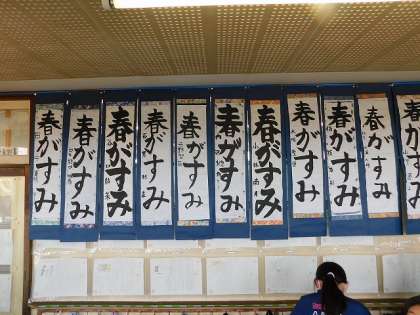 春がすみ
春がすみ
春がすみ
春がすみ
春がすみ
春がすみ
春がすみ
春がすみ
春がすみ
春がすみ
春がすみ